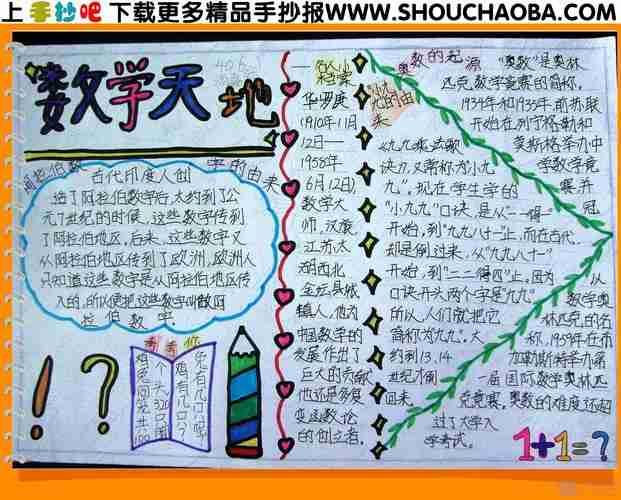 上手抄吧 下载更多精品手抄报WWW.SHOUCHAOBA.COM
数学天地
阿拉伯数字的由来
古代印度人创
造了阿拉伯数字后,大约到了公
元7世纪的时候,这些数字传到
了阿拉伯地区,后来,这些数字又
从阿拉伯地区传到了欧洲,欧洲人
只知道这些数字是从阿拉伯地区传
入的,所以便把这些数字叫做阿
拉伯数字.
!?
考考你
鸡兔同笼共100
个头320只脚
鸡有几只?
兔有几只呢
华罗庚
1910年11月
12日—
1985年
6月12日,
数学大
师,汉族,
江苏太
湖西北
金坛县城
镇人,他为
中国数学的
发展作出了
巨大的贡献
他还是多复
变函数论
的创立者.
小九九的由来
《九九乘法歌
诀》,又常称为“小九
九”。现在学生学的
“小九九”口诀,是从“一得一”
开始,到“九九八十一”止,而在古代,
却是倒过来,从“九九八十一”
开始,到“二二得四”止。因为
口诀开头两个字是“九九”,
所以,人们就把它
简称为“九九”。大
约到13、14
世纪才倒
回来.
奥数的起源
“奥数”是奥林
匹克数学竞赛的简称,
1934年和1935年前苏联
开始在列宁格勒和
莫斯科举办中
学数学竞
赛,并
冠
以
数学奥
林匹克的名
称,1959年在布
加勒斯特举办第
一届国际数学奥林匹
克竞赛。奥数的难度还超
过了大学入
学考试。
1+1=?